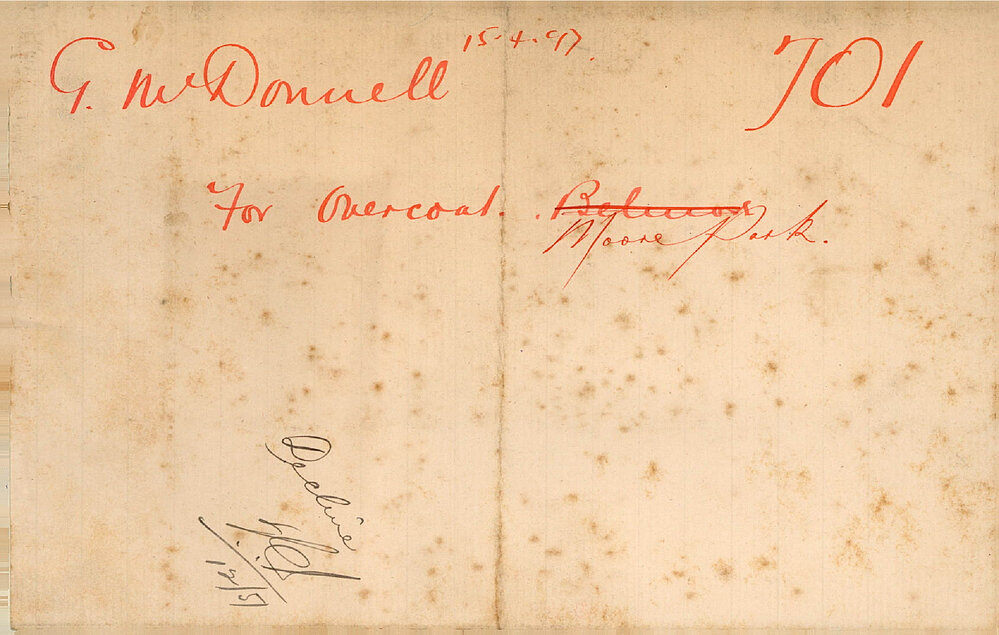 G. McDonnell 15.4.97 701
For Overcoat.
Moore Park.
Decline
12/5/